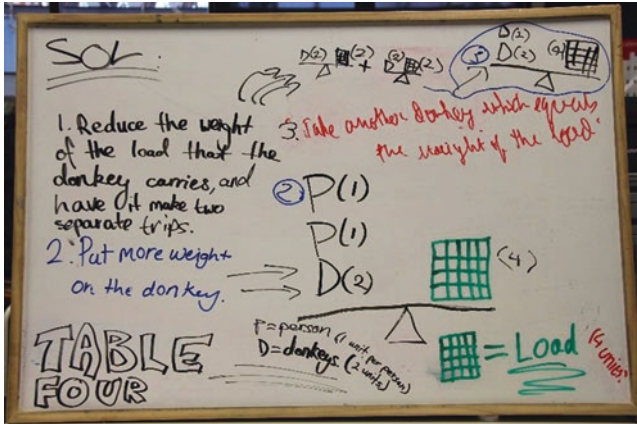 SOL.
D(2) (2) + D(2) (2)
3 D(2) D(2) (4)
1. Reduce the weight
of the load that the
donkey carries, and
have it make two
separate trips.
2. Put more weight
on the donkey.
3. Take another donkey which equals
the weight of the load.
2 P(1)
P(1)
D(2)
(4)
P=person (1 unit per person)
D=donkeys (2 units)
= Load (4 units)
TABLE
FOUR